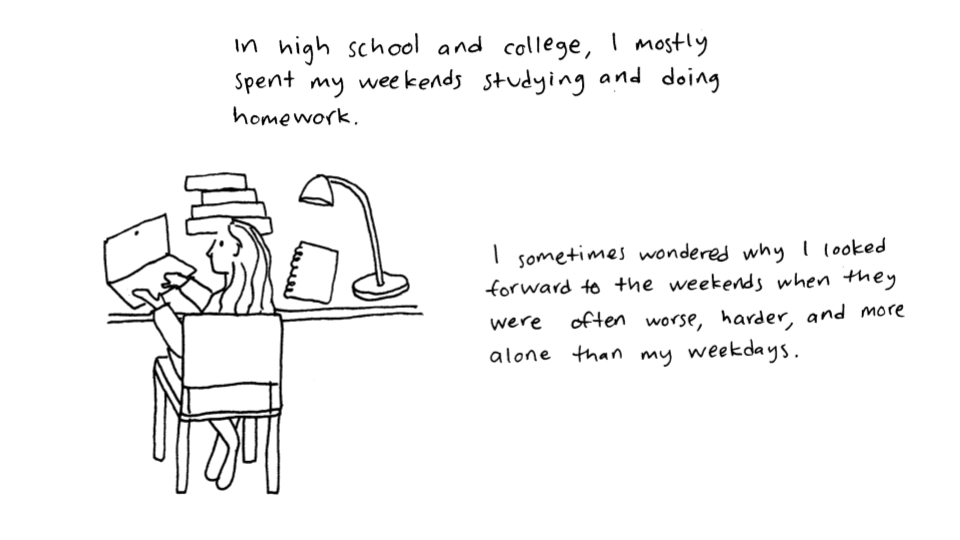 In high school and college, I mostly
spent my weekends studying and doing
homework.
I sometimes wondered why I looked
forward to the weekends when they
were often worse, harder, and more
alone than my weekdays.